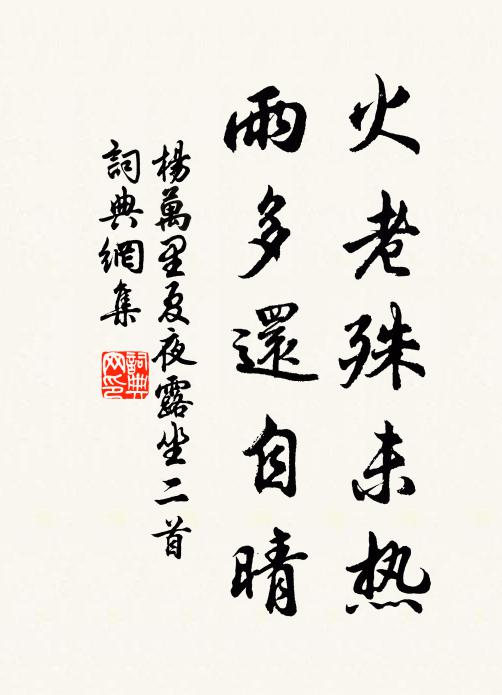 火老殊未热
雨多還自晴
楊萬里夏夜露坐二首
詞典網集
詞典網印